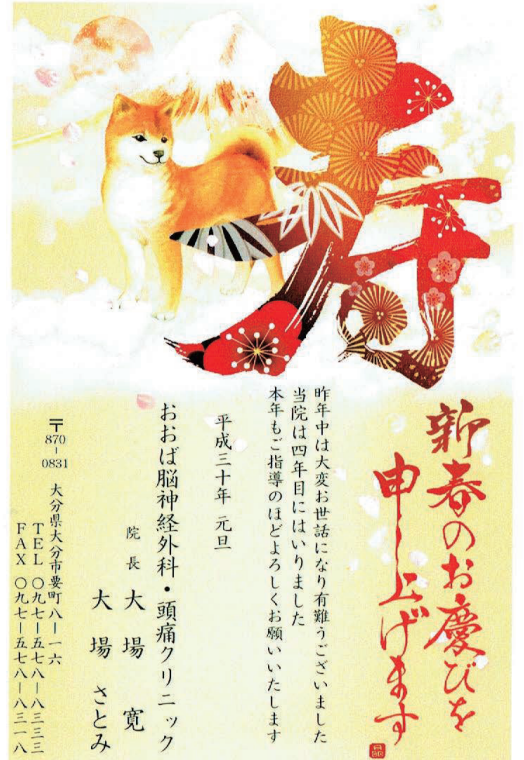 寿
新春のお慶びを
申し上げます
昨年中は大変お世話になり有難うございました
当院は四年目にはいりました
本年もご指導のほどよろしくお願いいたします
平成三十年 元旦
おおば脳神経外科・頭痛クリニック
院長 大場 寛
大場 さとみ
〒870-0831 大分県大分市要町八ー一六
TEL 〇九七ー五七八ー八三三三
FAX 〇九七ー五七八ー八三一八